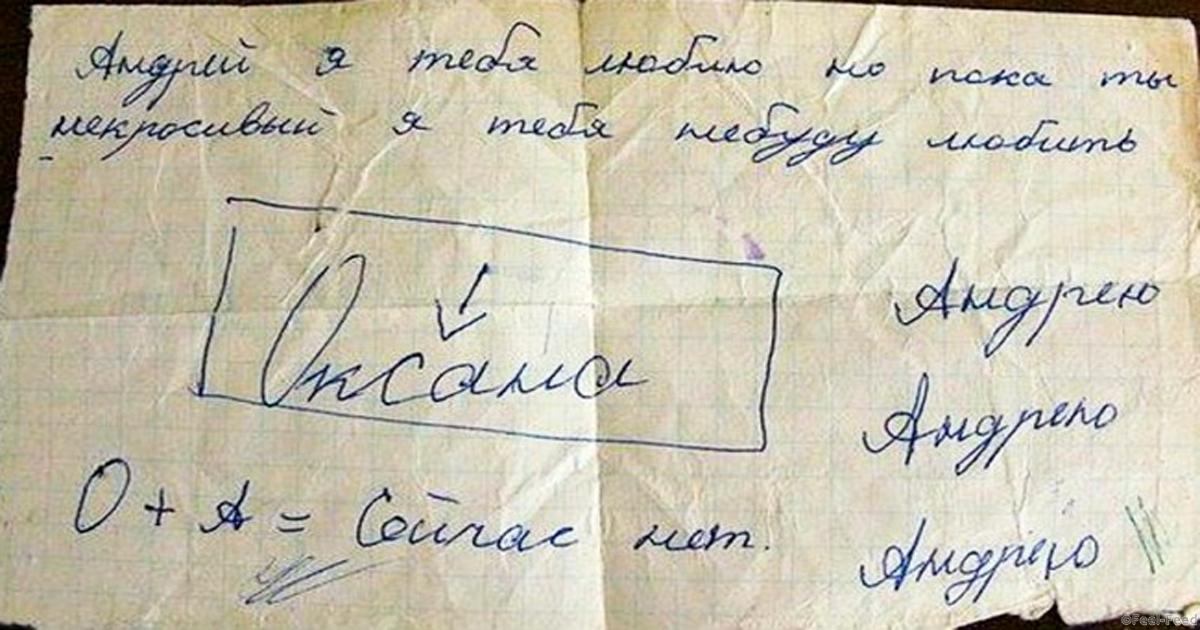 Андрей я тебя люблю но пока ты
некросивый я тебя небуду любить
Оксана
Андрею
Андрею
О + А = Сейчас нет.
Андрею
©Feel-Feed